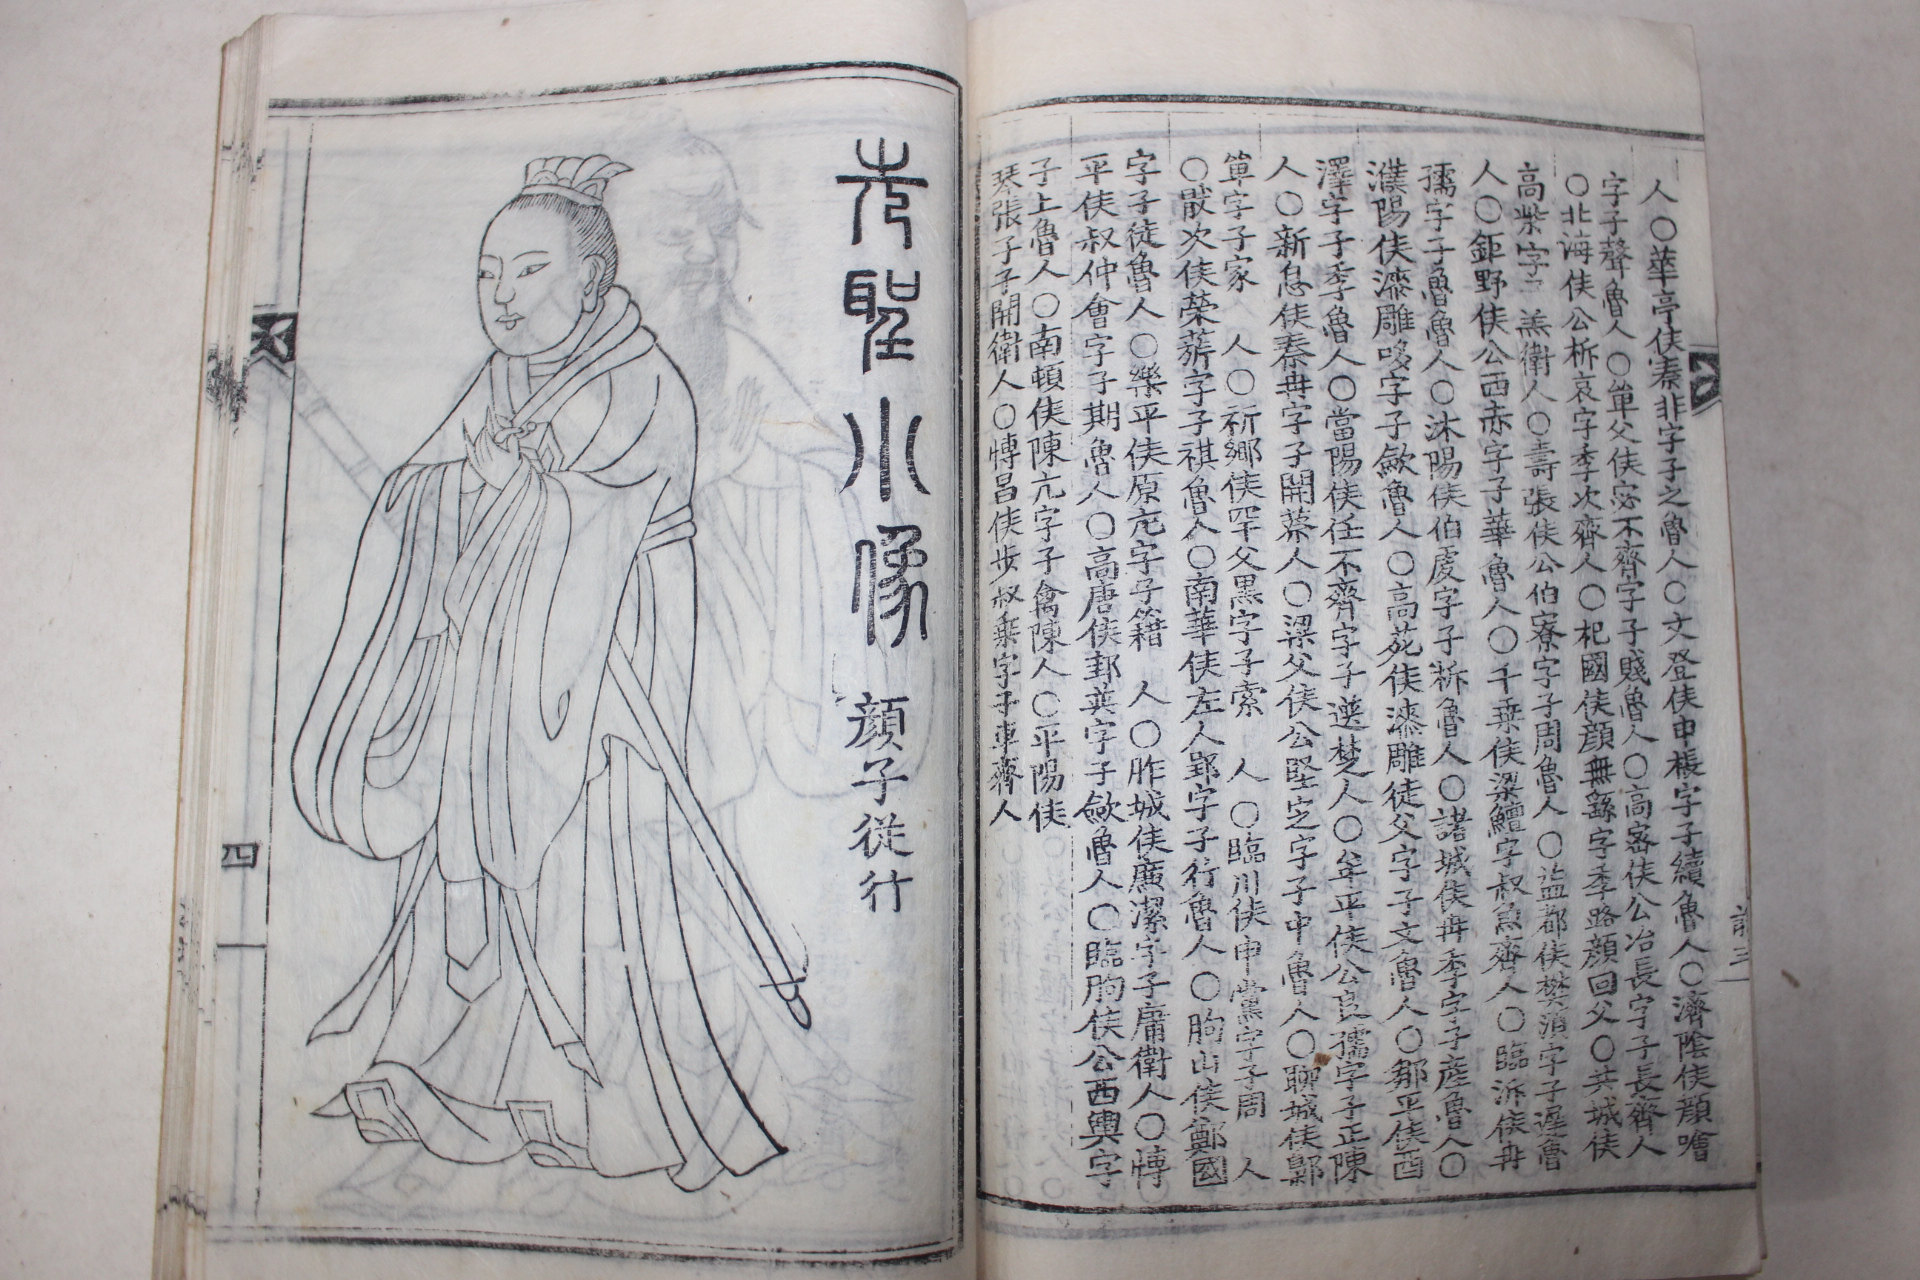 人○華亭侯秦非字子之魯人○文登侯申棖字子續魯人○濟陰侯顔噲
字子聲魯人○單父侯宓不齊字子賤魯人○高密侯公冶長字子長齊人
○北海侯公析哀字季次齊人○杞國侯顔無繇字季路顔回父○共城侯
高柴字子羔衛人○壽張侯公伯寮字子周魯人○益都侯樊須字子遲魯
人○鉅野侯公西赤字子華魯人○千乗侯梁鱣字叔魚齊人○臨沂侯冉
孺字子魯魯人○沐陽侯伯虔字子析魯人○諸城侯冉季字子産魯人○
濮陽侯漆雕哆字子歛魯人○高苑侯漆雕徒父字子文魯人○鄒平侯酉
澤字子季魯人○當陽侯任不齊字子選楚人○牟平侯公良孺字子正陳
人○新息侯秦冉字子開蔡人○梁父侯公堅㝎字子中魯人○聊城侯鄡
單字子家 人○祈鄉侯罕父黒字子索 人○臨川侯申黨字子周 人
○厭次侯榮旂字子祺魯人○南華侯左人郢字子行魯人○朐山侯鄭國
字子徒魯人○樂平侯原亢字子籍 人○胙城侯廉潔字子庸衛人○博
平侯叔仲會字子期魯人○高唐侯邽巽字子歛魯人○臨朐侯公西輿字
子上魯人○南頓侯陳亢字子禽陳人○平陽侯
琴張子子開衛人○博昌侯步叔乗字子車齊人
三
先聖小像 顔子從行
四